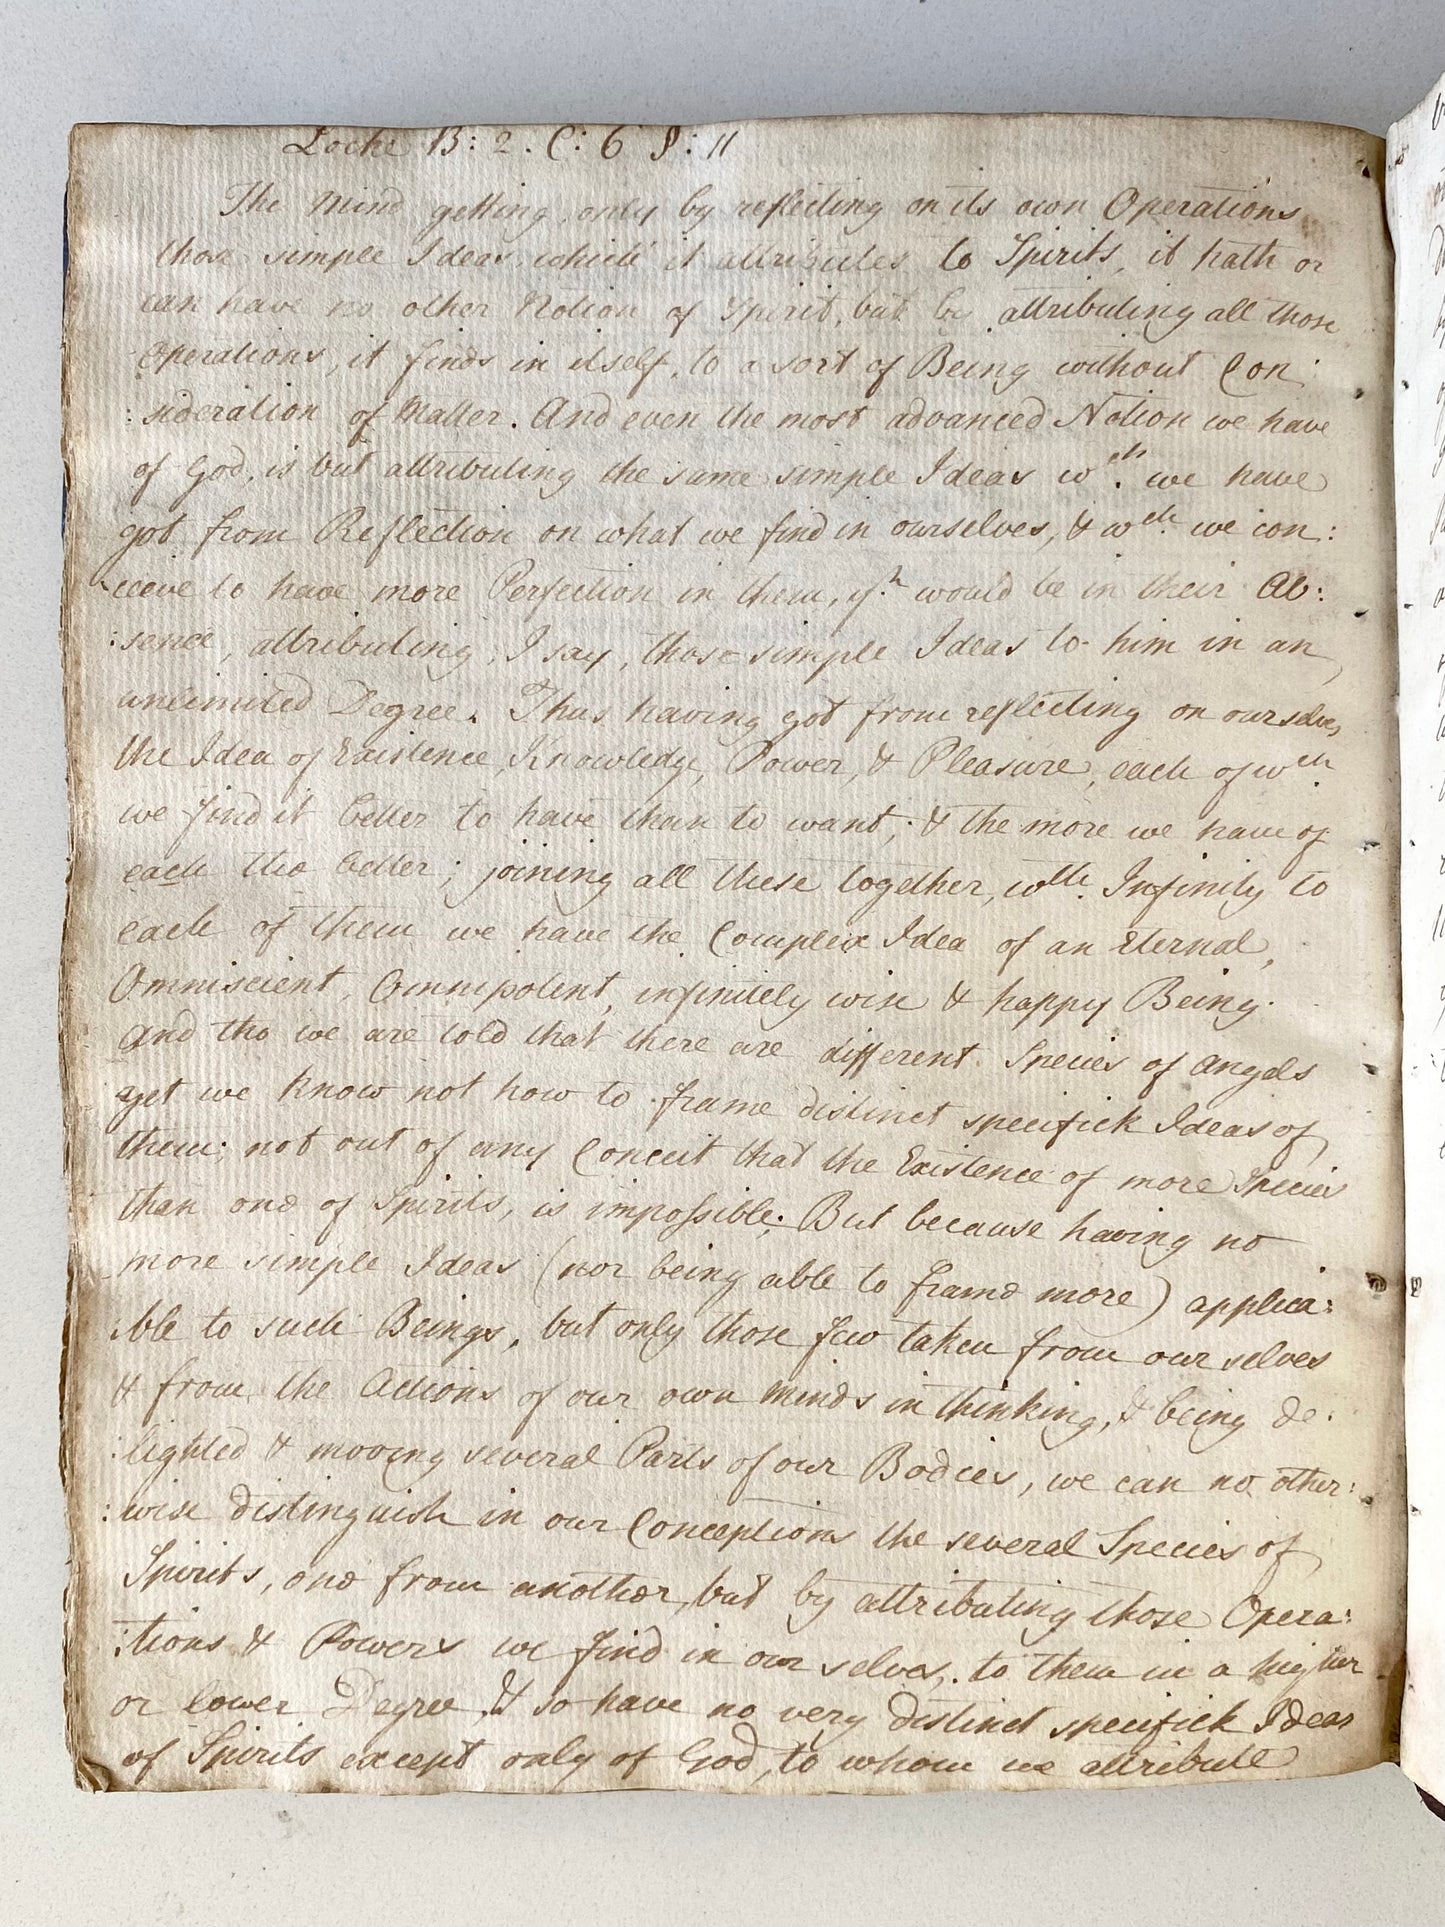 Locke B: 2. C: 6 §: 11
The Mind getting, only by reflecting on its own Operations
those simple Ideas which it attributes to Spirits, it hath or
can have no other Notion of Spirit, but by attributing all those
Operations, it finds in itself, to a sort of Being without Con:
:sideration of Matter. And even the most advanced Notion we have
of God, is but attributing the same simple Ideas wch. we have
got from Reflection on what we find in ourselves, & wch. we con:
:ceive to have more Perfection in them, yn. would be in their Ab:
:sence, attributing, I say, those simple Ideas to him in an
unlimited Degree. Thus having got from reflecting on ourselves
the Idea of Existence, Knowledge, Power, & Pleasure, each of wch.
we find it better to have than to want; & the more we have of
each the better; joining all these together, wth. Infinity to
each of them we have the Complex Idea of an Eternal,
Omniscient, Omnipotent, infinitely wise & happy Being.
And tho we are told that there are different Species of Angels
yet we know not how to frame distinct specifick Ideas of
them; not out of any Conceit that the Existence of more Species
than one of Spirits, is impossible; But because having no
more simple Ideas (nor being able to frame more) applica:
:ble to such Beings, but only those few taken from our selves
& from the Actions of our own Minds in thinking, & being de:
:lighted & moving several Parts of our Bodies, we can no other:
:wise distinguish in our Conceptions the several Species of
Spirits, one from another, but by attributing those Opera:
:tions & Powers we find in our selves, to them in a higher
or lower Degree, & so have no very distinct specifick Ideas
of Spirits except only of God, to whom we attribute